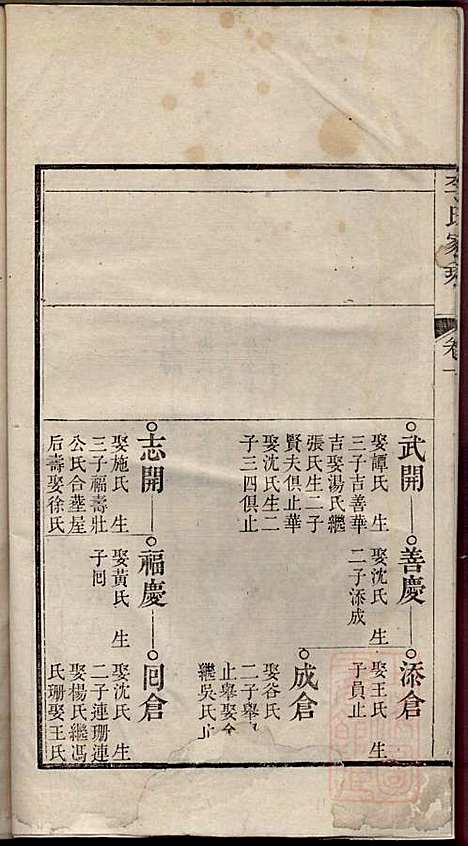 李氏家乘
卷一
武開
娶譚氏 生
三子吉善華
吉娶湯氏繼
張氏生二子
賢夫俱止華
娶沈氏生二
子三四俱止
善慶
娶沈氏 生
二子添成
添倉
娶王氏 生
子員止
成倉
娶谷氏
二子舉
止舉娶
繼吳氏止
志開
娶施氏 生
三子福壽壯
公氏合塟屋
后壽娶徐氏
福慶
娶黃氏 生
子囘
囘倉
娶沈氏 生
二子連珊連
娶楊氏繼馮
氏珊娶王氏